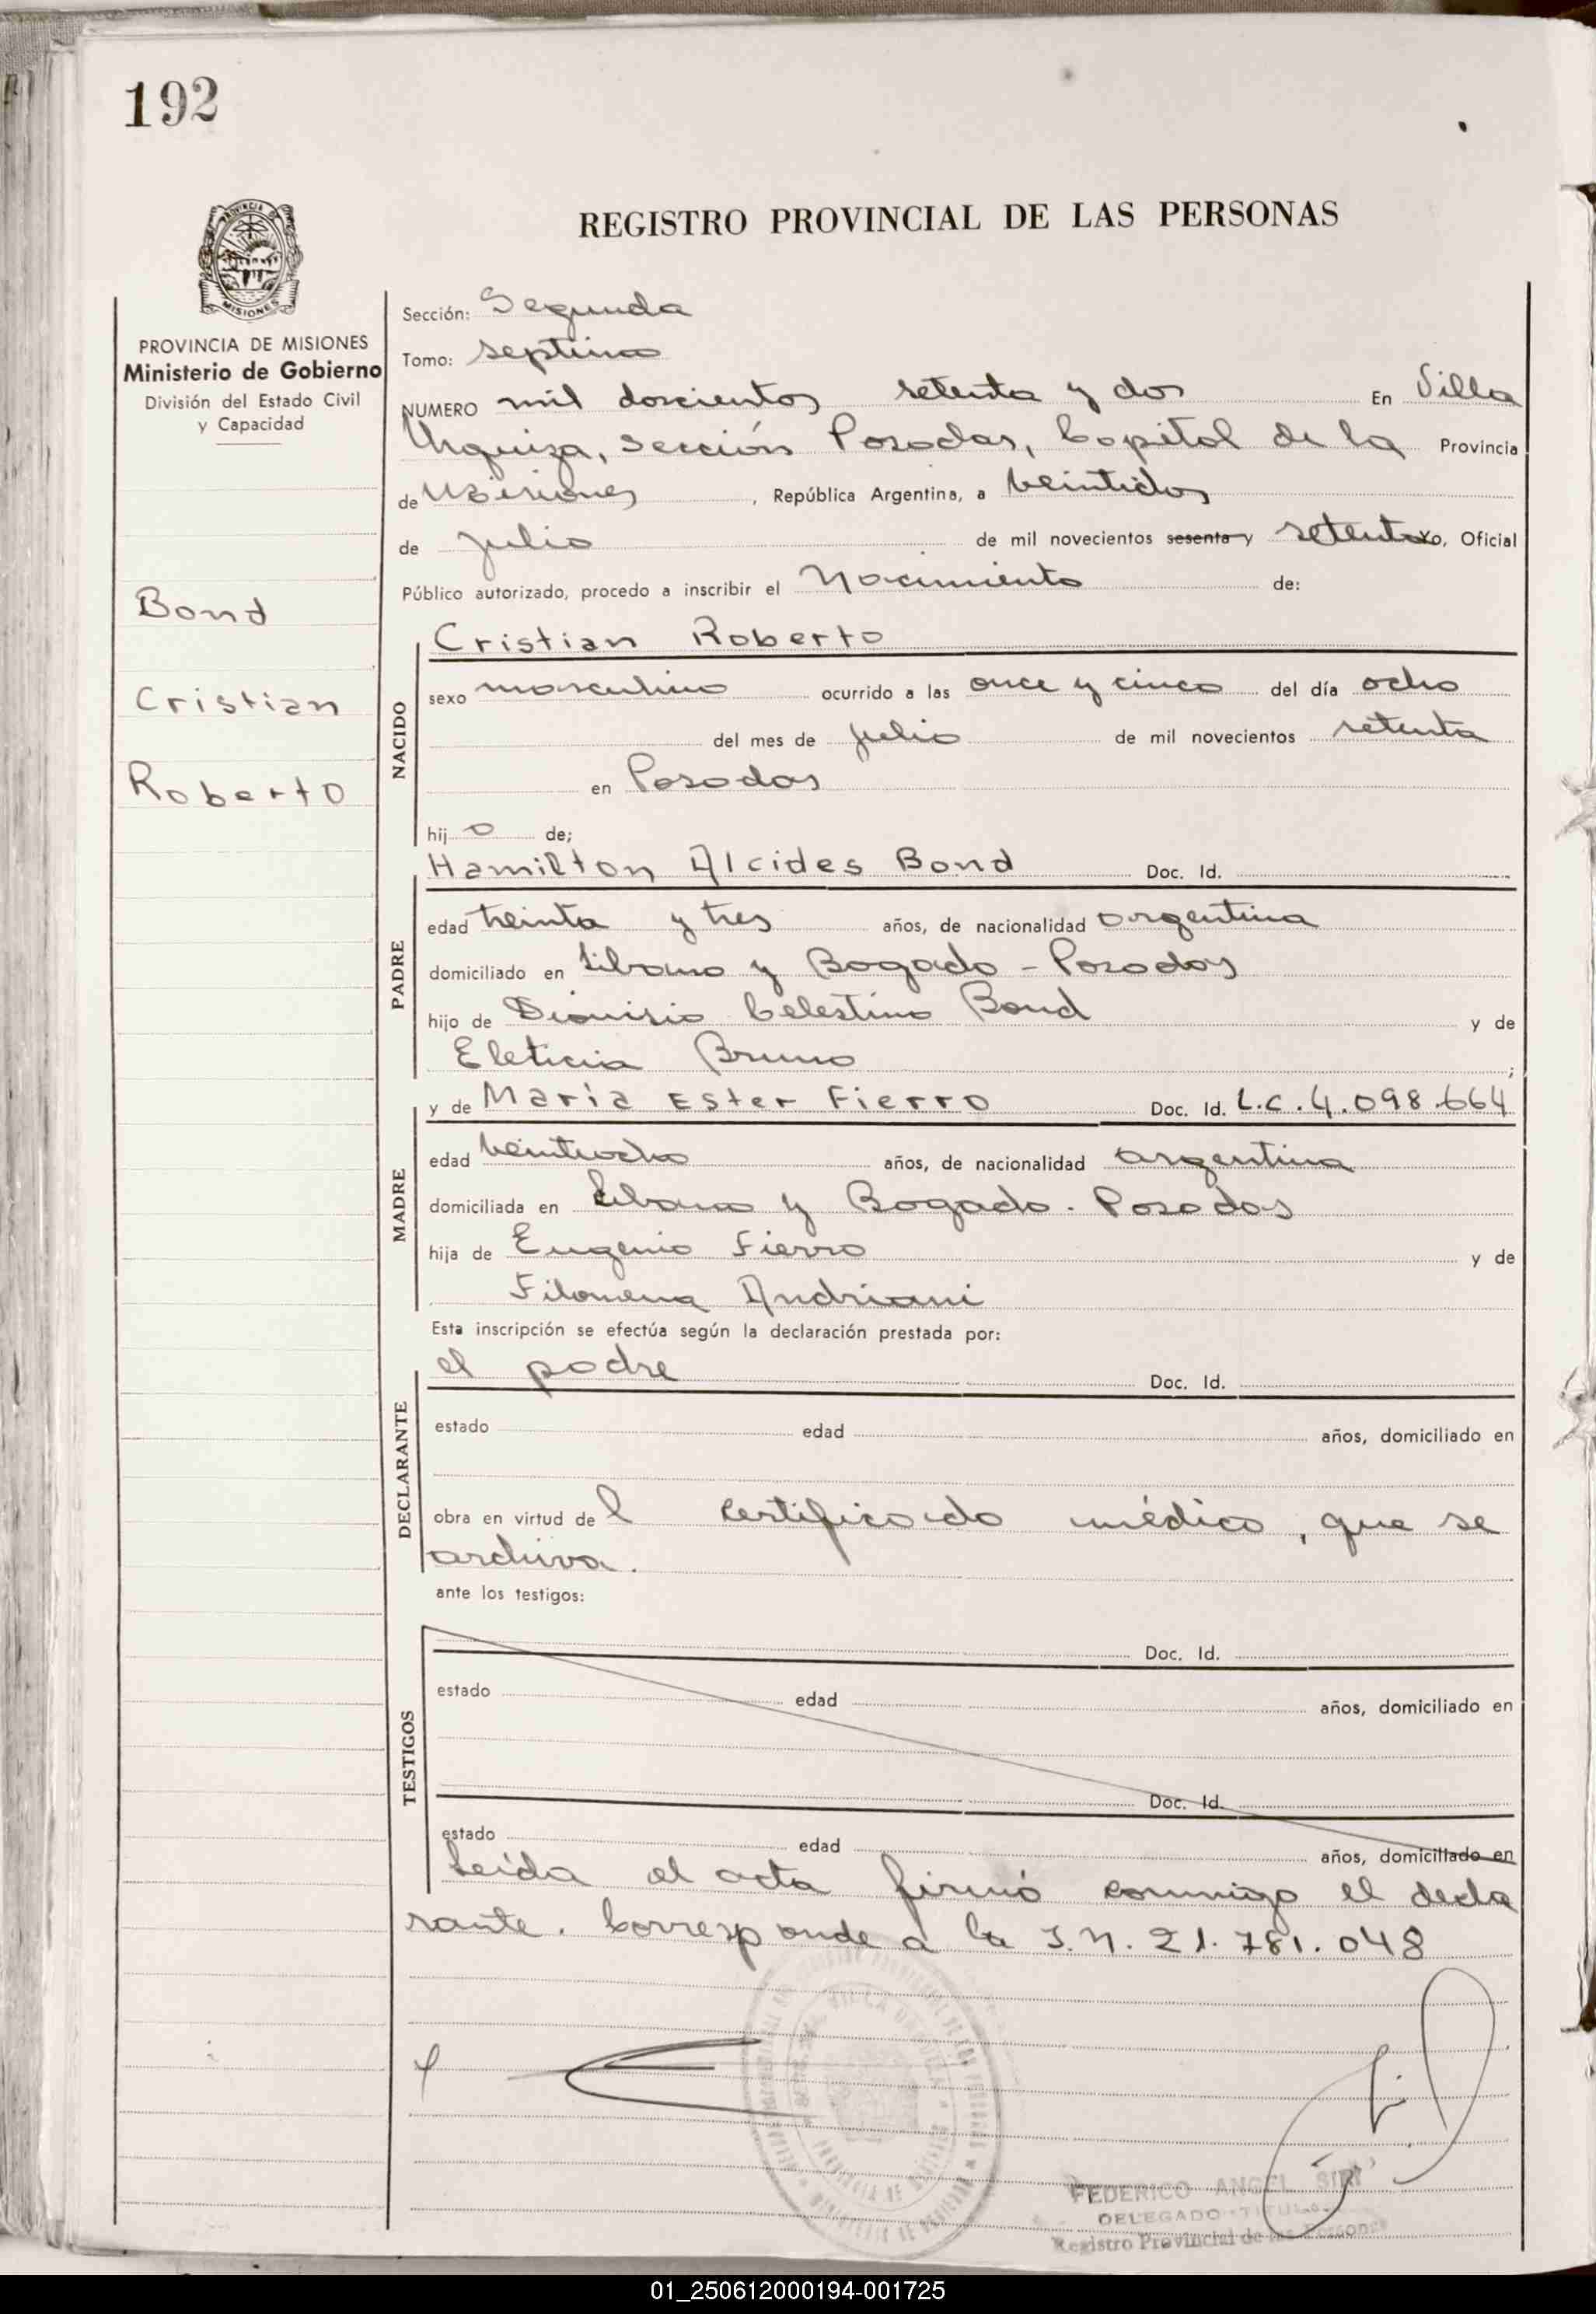 192
REGISTRO PROVINCIAL DE LAS PERSONAS
PROVINCIA DE
MISIONES
PROVINCIA DE MISIONES
Ministerio de Gobierno
División del Estado Civil
y Capacidad
Bond
Cristian
Roberto
Sección: Segunda
Tomo: septimo
NUMERO mil doscientos setenta y dos En Villa
Urquiza, sección Posadas, Capital de la Provincia
de Misiones, República Argentina, a veintidos
de julio de mil novecientos sesenta y setenta yo, Oficial
Público autorizado, procedo a inscribir el Nacimiento de:
NACIDO
Cristian Roberto
sexo masculino ocurrido a las once y cinco del día ocho
del mes de julio de mil novecientos setenta
en Posadas
hij o de;
PADRE
Hamilton Alcides Bond Doc. Id.
edad treinta y tres años, de nacionalidad argentina
domiciliado en Libano y Bogado - Posadas
hijo de Dionisio Celestino Bond y de
Eleticia Bruno ;
MADRE
y de María Ester Fierro Doc. Id. L.C. 4.098.664
edad veintiocho años, de nacionalidad argentina
domiciliada en Libano y Bogado. Posadas
hija de Eugenio Fierro y de
Filomena Andriani
Esta inscripción se efectúa según la declaración prestada por:
DECLARANTE
el padre Doc. Id.
estado edad años, domiciliado en
obra en virtud de l certificado médico, que se
archiva.
ante los testigos:
TESTIGOS
Doc. Id.
estado edad años, domiciliado en
Doc. Id.
estado edad años, domiciliado en
Leída el acta firmó conmigo el decla
rante. Corresponde a la I.N. 21.781.048
FEDERICO ANGEL SIRI
DELEGADO TITULAR
Registro Provincial de las Personas
01_250612000194-001725